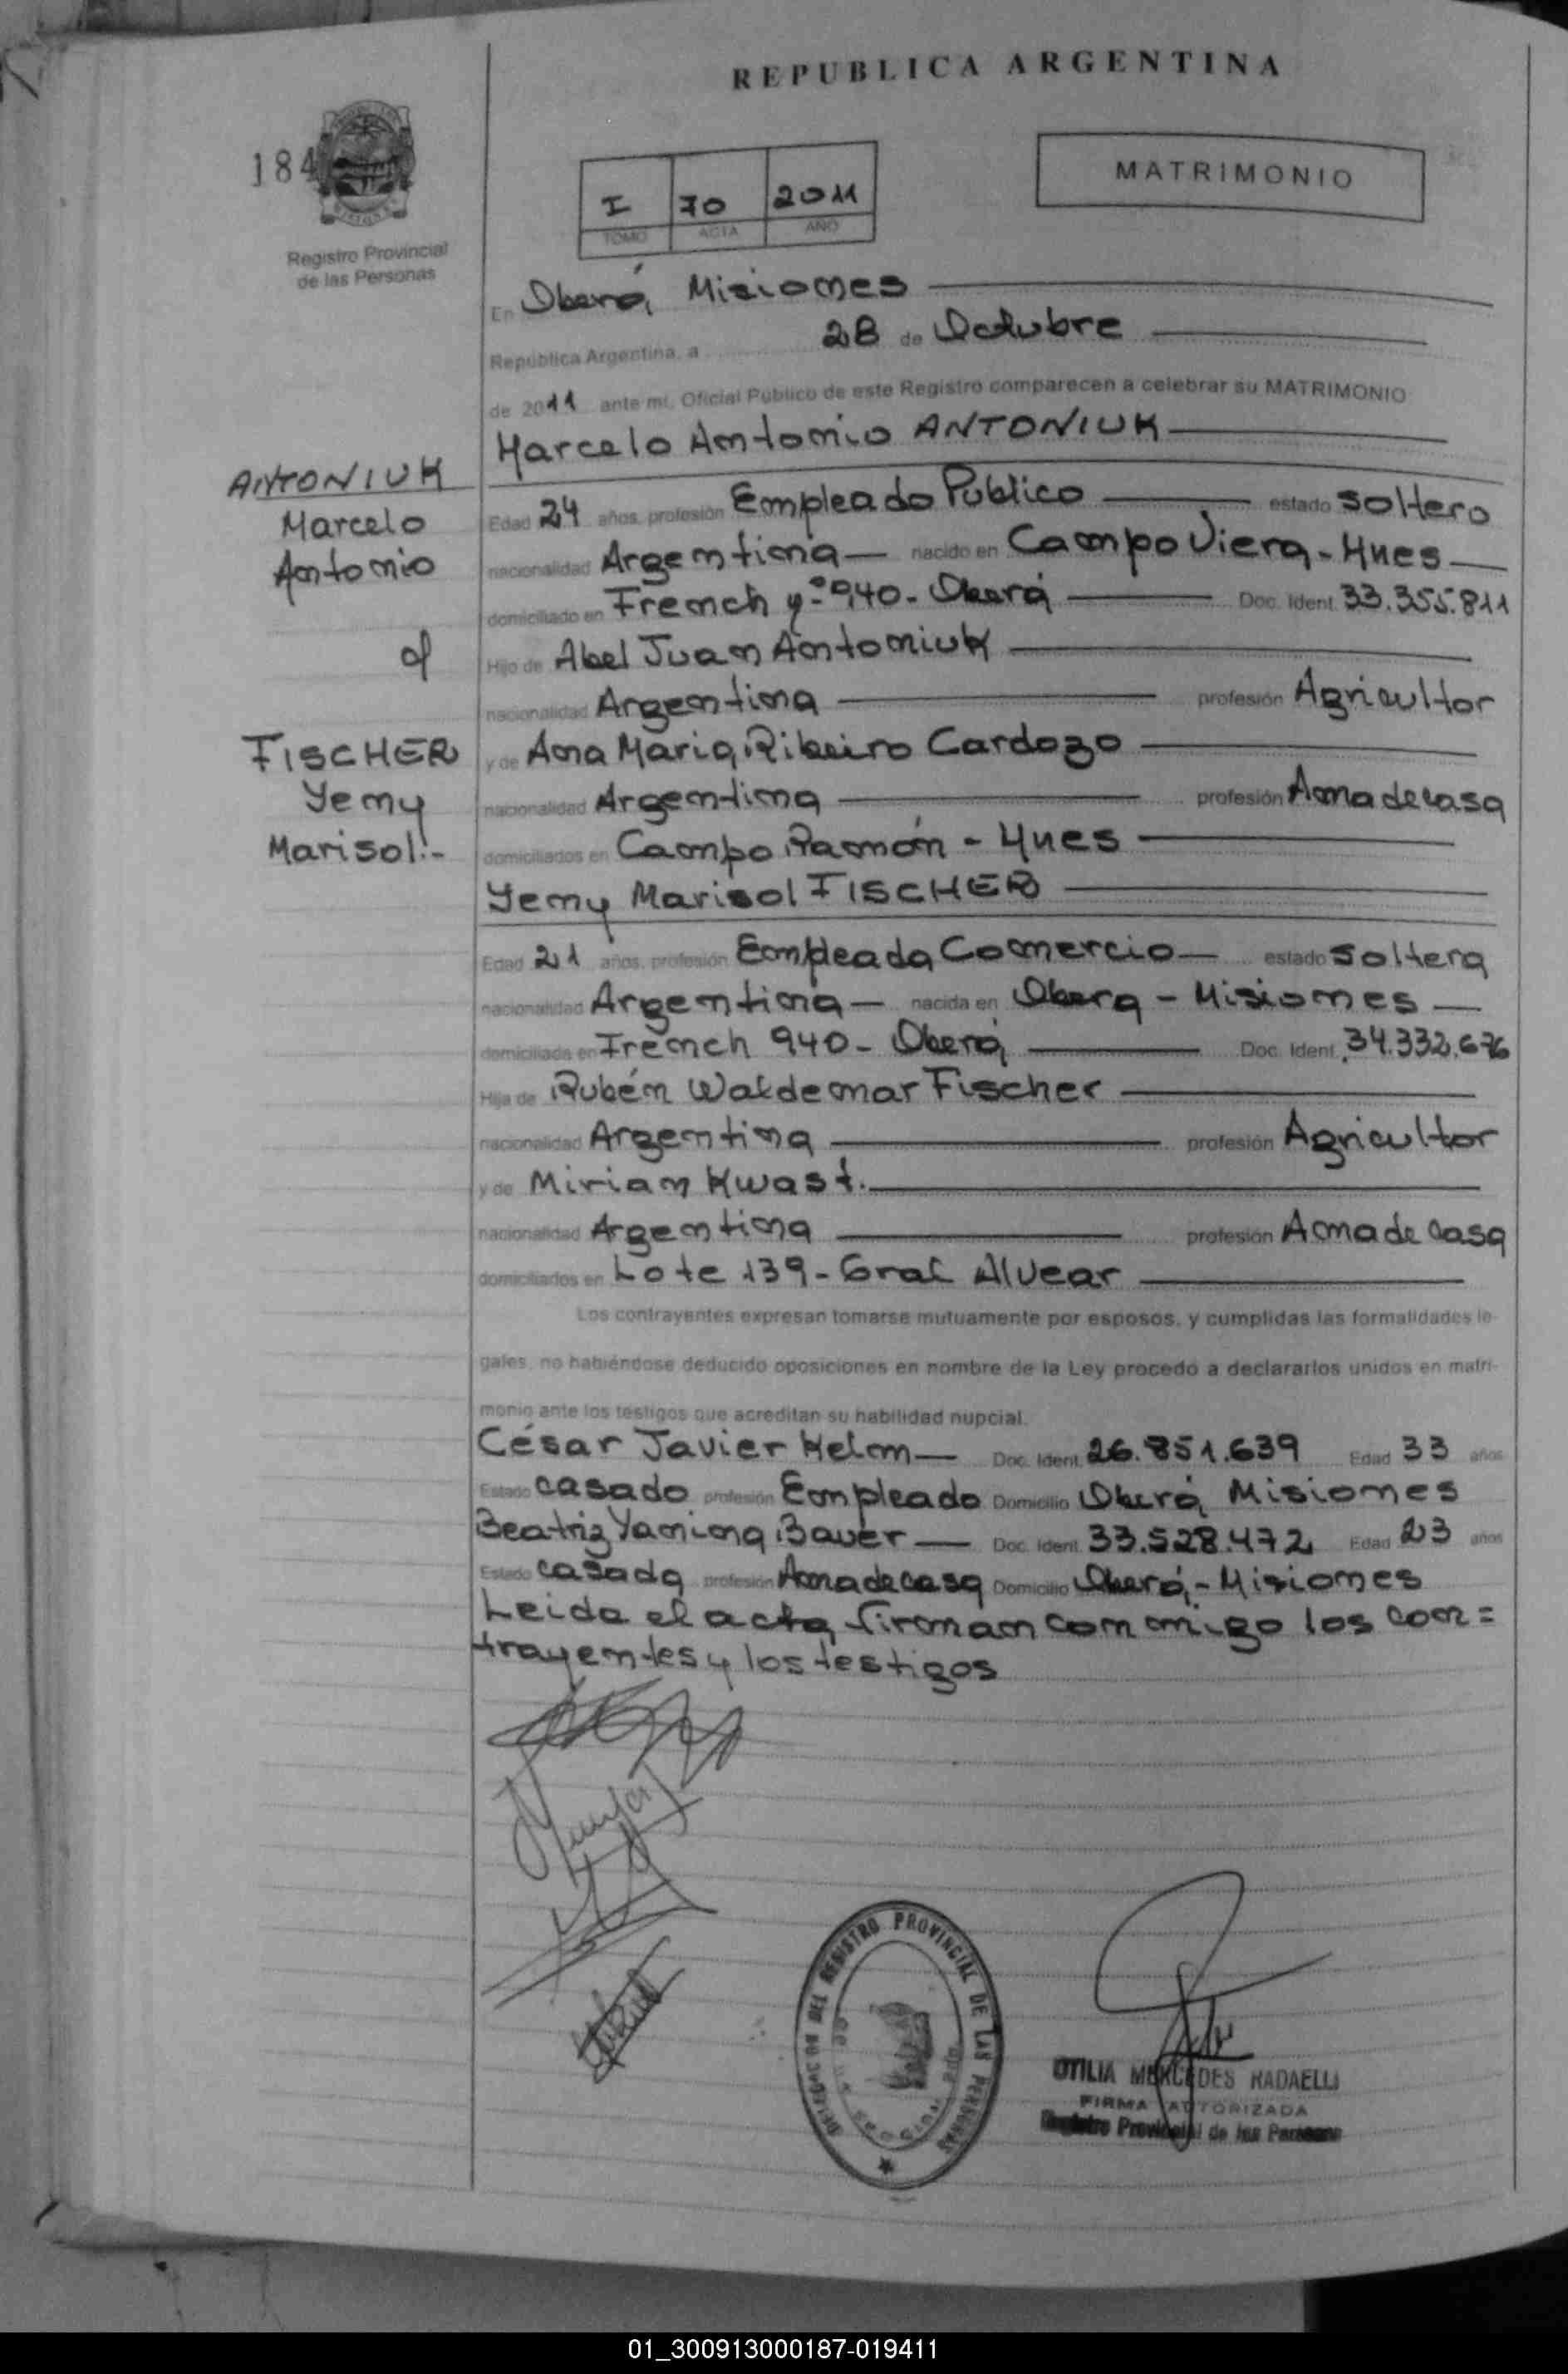 REPUBLICA ARGENTINA
184
MATRIMONIO
I 70 2011
TOMO ACTA AÑO
Registro Provincial
de las Personas
En Oberá, Misiones
República Argentina, a 28 de Octubre
de 2011 ante mí, Oficial Público de este Registro comparecen a celebrar su MATRIMONIO
Marcelo Antonio ANTONIUK
ANTONIUK
Marcelo
Antonio
Edad 24 años, profesión Empleado Público estado soltero
nacionalidad Argentina nacido en Campo Viera - Mnes
domiciliado en French y 940 - Oberá Doc. Ident. 33.355.811
Hijo de Abel Juan Antoniuk
nacionalidad Argentina profesión Agricultor
FISCHER
Yeny
Marisol.-
y de Ana Maria Ribeiro Cardozo
nacionalidad Argentina profesión Ama de casa
domiciliados en Campo Ramón - Mnes
Yeny Marisol FISCHER
Edad 21 años, profesión Empleada Comercio estado soltera
nacionalidad Argentina nacida en Obera - Misiones
domiciliada en French 940 - Oberá Doc. Ident. 34.332.676
Hija de Rubén Waldemar Fischer
nacionalidad Argentina profesión Agricultor
y de Miriam Kwast.
nacionalidad Argentina profesión Ama de Casa
domiciliados en Lote 139 - Gral Alvear
Los contrayentes expresan tomarse mutuamente por esposos, y cumplidas las formalidades le-
gales, no habiéndose deducido oposiciones en nombre de la Ley procedo a declararlos unidos en matri-
monio ante los testigos que acreditan su habilidad nupcial.
César Javier Helm Doc. Ident. 26.851.639 Edad 33 años
Estado casado profesión Empleado Domicilio Oberá, Misiones
Beatriz Yanina Bauer Doc. Ident. 33.528.472 Edad 23 años
Estado casada profesión Ama de casa Domicilio Oberá - Misiones
Leida el acta, firman conmigo los con=
trayentes y los testigos
DELEGACION DEL REGISTRO PROVINCIAL DE LAS PERSONAS
OTILIA MERCEDES RADAELLI
FIRMA AUTORIZADA
Registro Provincial de las Personas
01_300913000187-019411